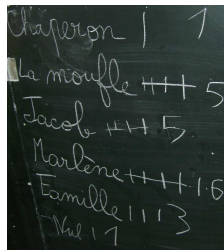 Chaperon | 1
La moufle 5
Jacob 5
Marlène 6
Famille ||| 3
Nul | 1